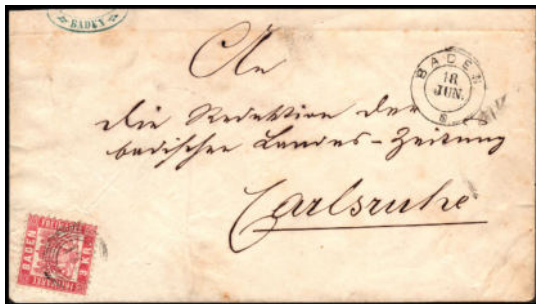 BADEN
An
BADEN
18
JUN.
8
die Redaktion der
badischen Landes-Zeitung
Carlsruhe
BADEN
FREIMARKE
3 KR.